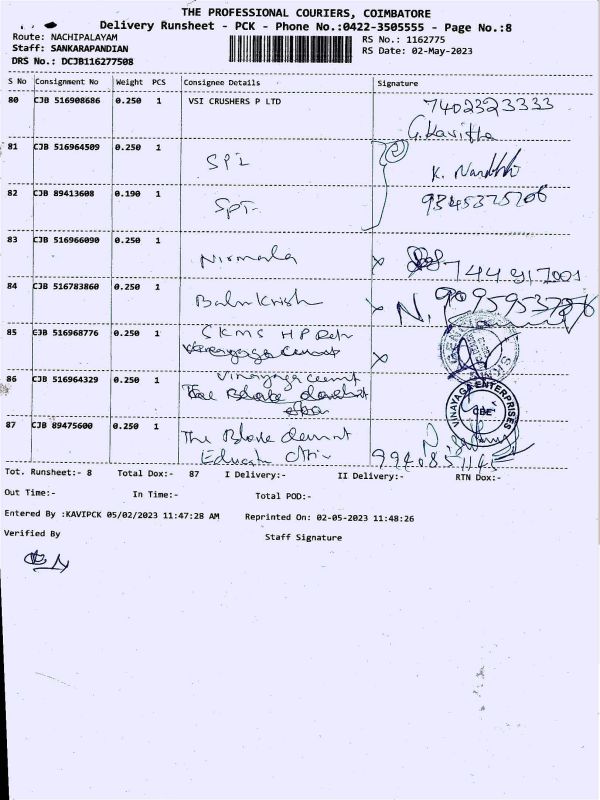 THE PROFESSIONAL COURIERS, COIMBATORE
Delivery Runsheet - PCK - Phone No.:0422-3505555 - Page No.:8
Route: NACHIPALAYAM
RS No.: 1162775
Staff: SANKARAPANDIAN
RS Date: 02-May-2023
DRS No.: DCJB116277508
S No Consignment No Weight PCS Consignee Details Signature
80 CJB 516908686 0.250 1 VSI CRUSHERS P LTD 7402323333
G. Kavitha
81 CJB 516964509 0.250 1 SPI K. Nandhi
82 CJB 89413608 0.190 1 SPI 9345375206
83 CJB 516966090 0.250 1 Nirmala
84 CJB 516783860 0.250 1 Balu Krish N.
85 CJB 516968776 0.250 1 CKMS HP
86 CJB 516964329 0.250 1 Vinayaga Cement
VINAYAGA ENTERPRISES
CBE
87 CJB 89475600 0.250 1 The
9940851145
Tot. Runsheet:- 8 Total Dox:- 87 I Delivery:- II Delivery:- RTN Dox:-
Out Time:- In Time:- Total POD:-
Entered By :KAVIPCK 05/02/2023 11:47:28 AM Reprinted On: 02-05-2023 11:48:26
Verified By Staff Signature